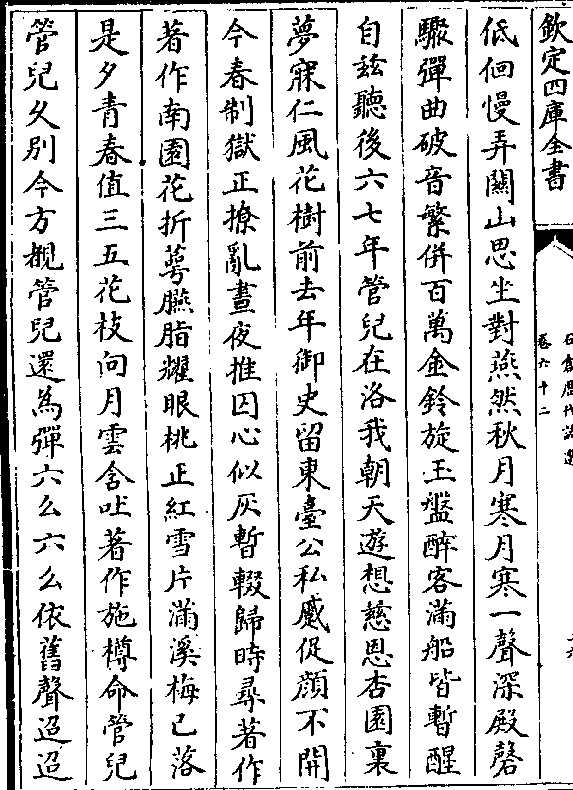 欽定四庫全書
石倉歷代詩選
卷六十二
低佪慢弄關山思坐對燕然秋月寒月寒一聲深殿磬
驟彈曲破音繁併百萬金鈴旋玉盤醉客滿船皆暫醒
自茲聽後六七年管兒在洛我朝天遊想慈恩杏園裏
夢寐仁風花樹前去年御史留東臺公私蹙促顏不開
今春制獄正撩亂晝夜推囚心似灰暫輟歸時尋著作
著作南園花折萼臙脂耀眼桃正紅雪片滿溪梅已落
是夕青春值三五花枝向月雲含吐著作施樽命管兒
管兒久別今方覩管兒還為彈六么六么依舊聲迢迢